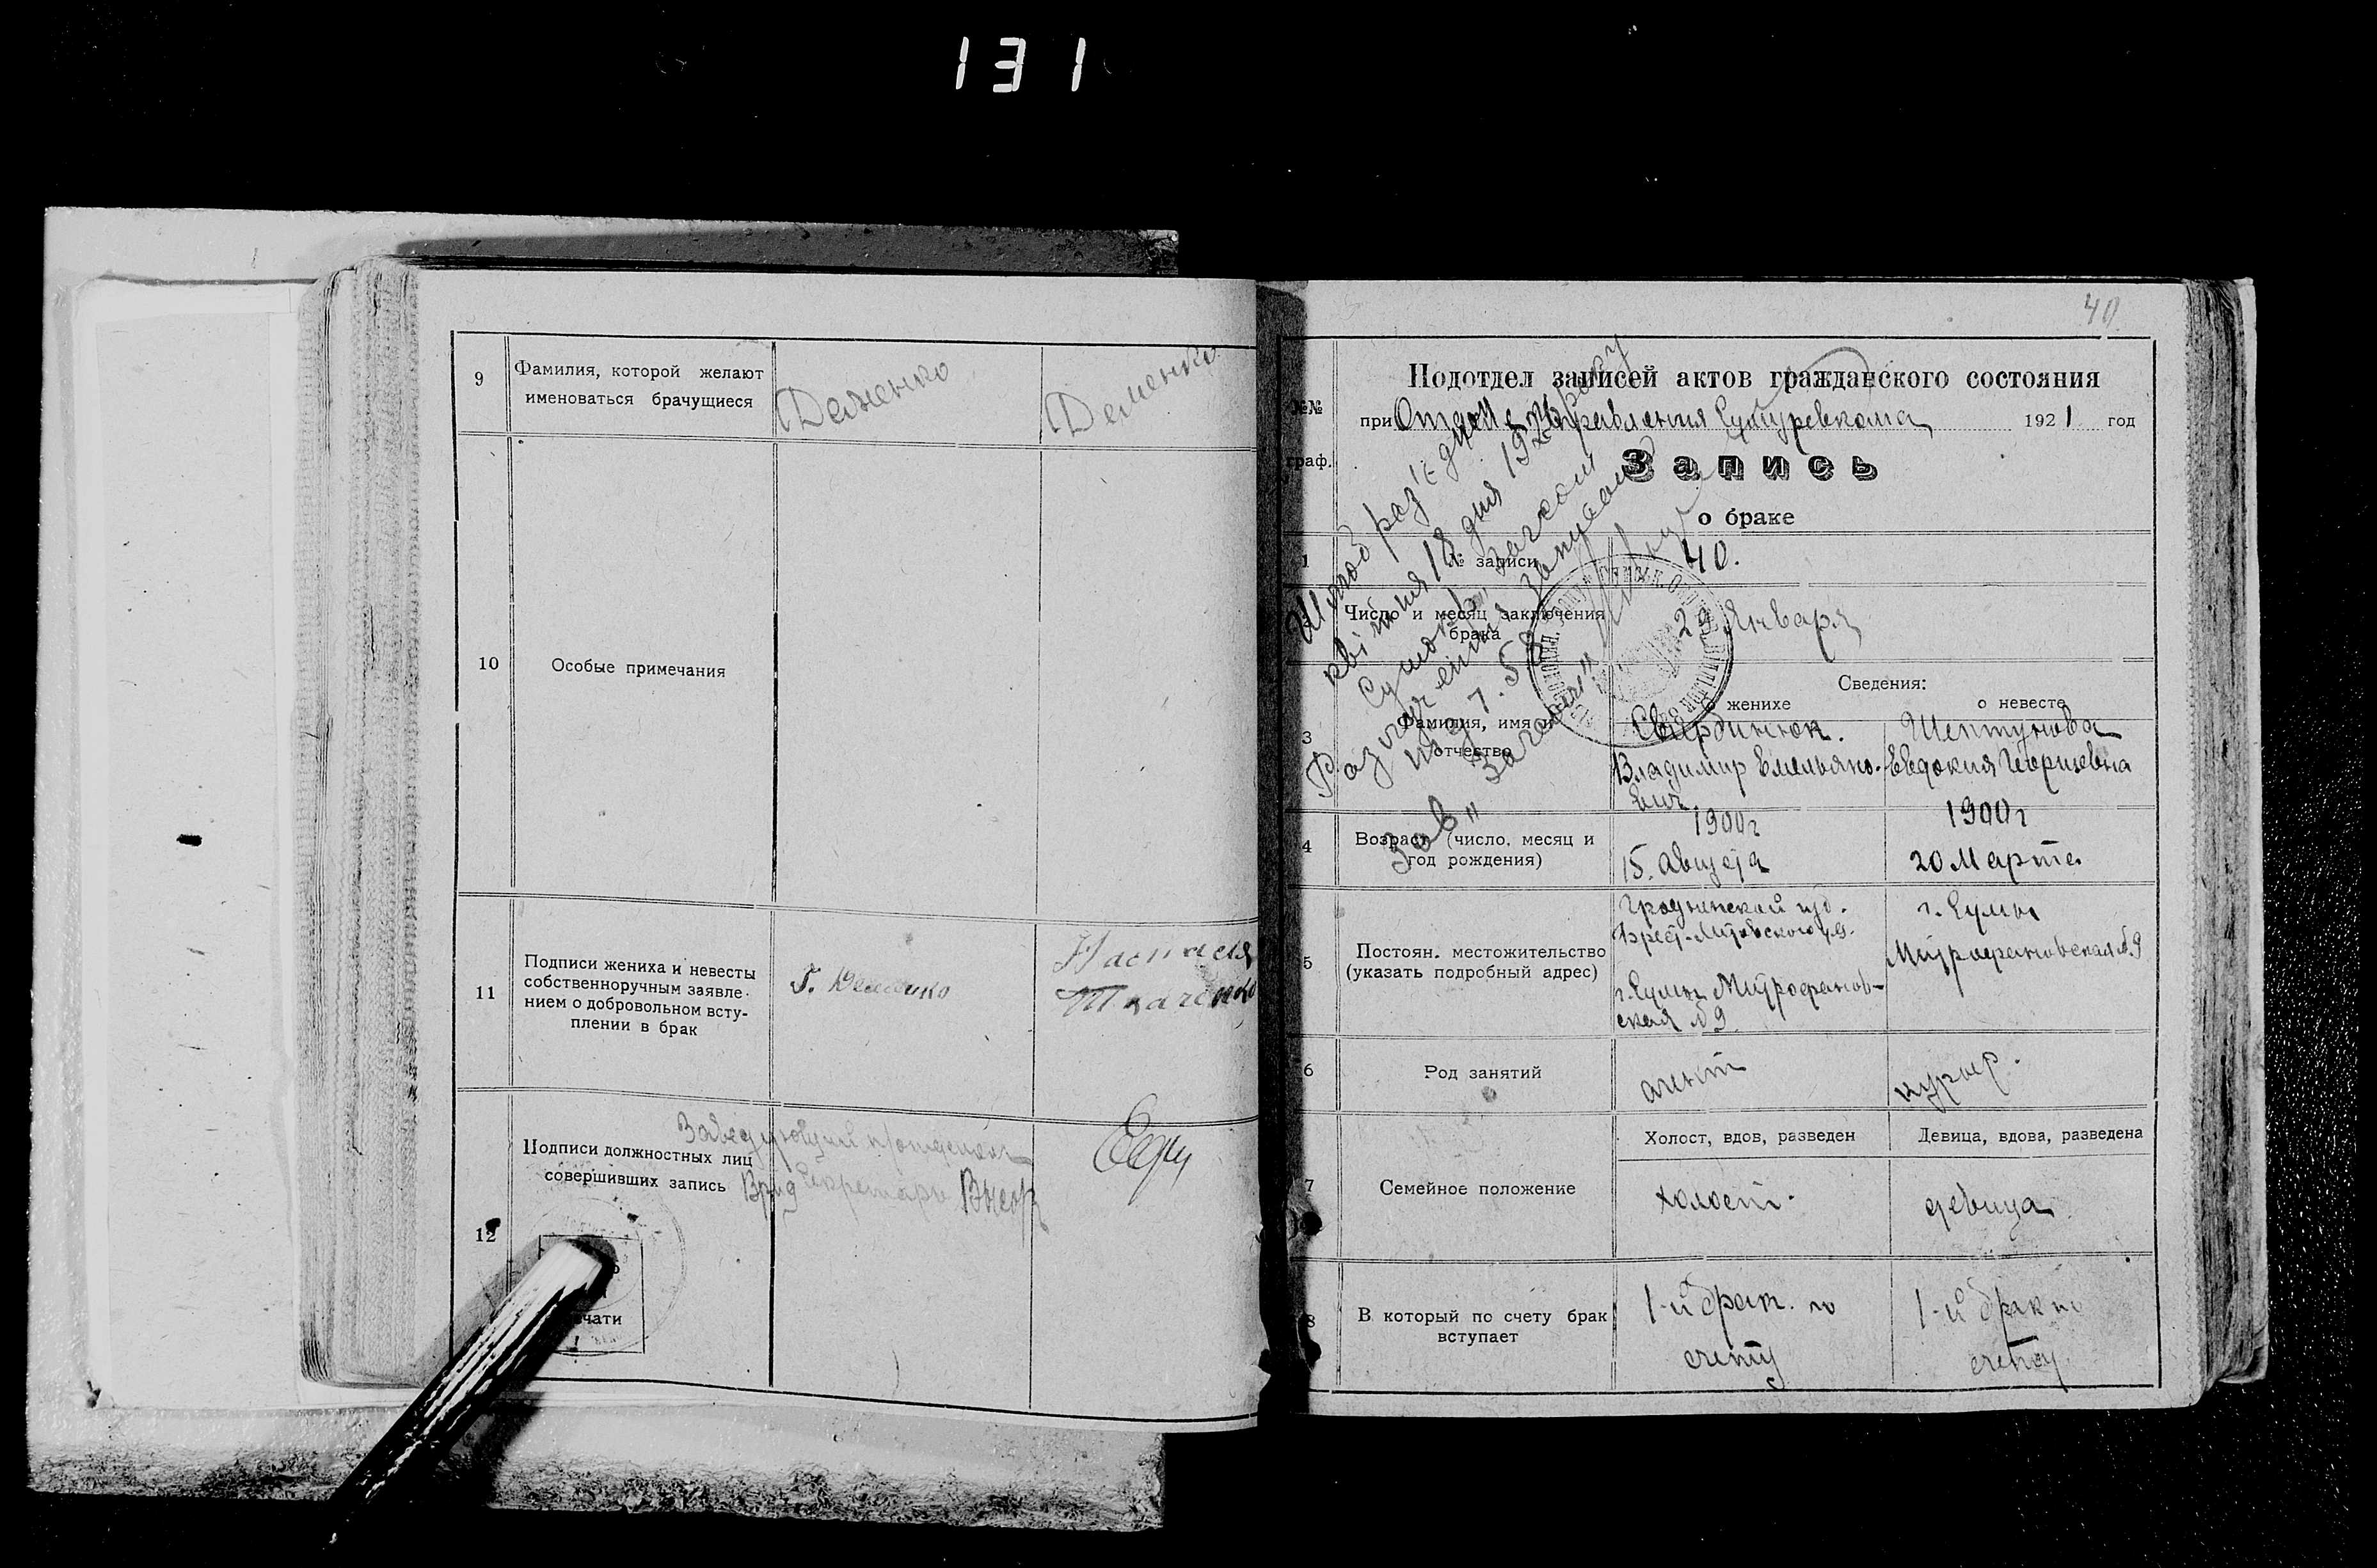 131
9
Фамилия, которой желают
именоваться брачущиеся
Деменко
Деменко
10
Особые примечания
11
Подписи жениха и невесты
собственноручным заявле-
нием о добровольном всту-
плении в брак
Г. Деменко
Настасия
Ткаченко
12
Подписи должностных лиц
совершивших запись
Заведующий п/отделом
Врид Секретаря
чати
40
№№
граф.
Подотдел записей актов гражданского состояния
при Отделе Управления Сумуревкома 1921 год
Запись
о браке
Шлюб
квітня 18 дня 192
загсом
Зав. Загсом
1
№ записи
40.
2
Число и месяц заключения
брака
29 Января
Сведения:
о женихе
о невесте
3
Фамилия, имя и
отчество
Свирдинюк.
Владимир Емельяно-
вич
Шептунова
Евдокия Георгиевна
4
Возраст (число, месяц и
год рождения)
1900г
15. Августа
1900г
20 Марта
5
Постоян. местожительство
(указать подробный адрес)
Гродненской губ.
Брест-Литовского у.
г. Сумы Митрофанов-
ская №9
г. Сумы
Митрофановская №9
6
Род занятий
агент
курьер.
7
Семейное положение
Холост, вдов, разведен
Девица, вдова, разведена
холост.
девица
8
В который по счету брак
вступает
1-й брак по
счету
1-й брак по
счету